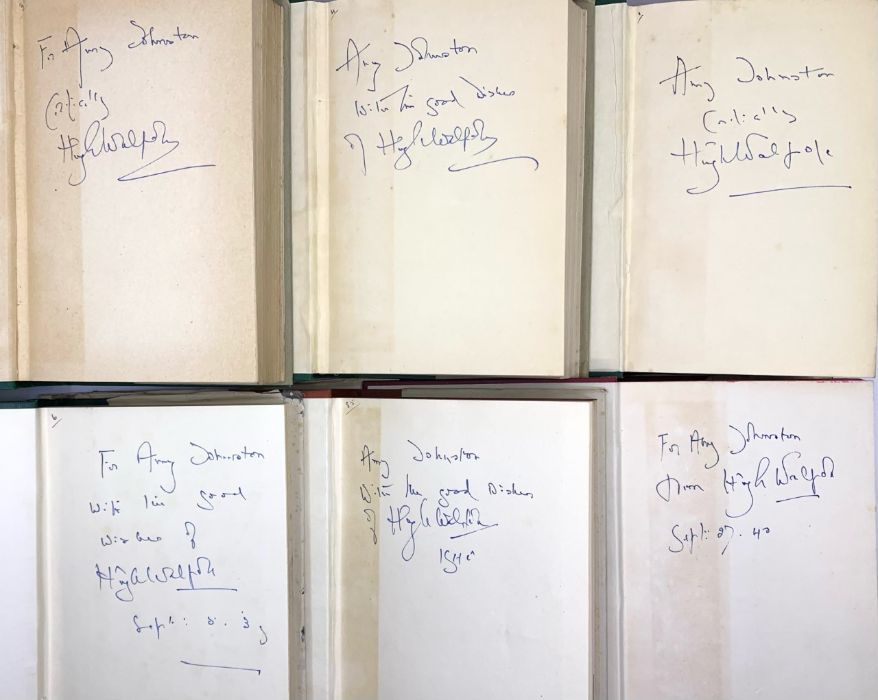 For Amy Johnston
Critically
Hugh Walpole
Amy Johnston
With the good wishes
of Hugh Walpole
Amy Johnston
Critically
Hugh Walpole
6.
For Amy Johnston
with the good
wishes of
Hugh Walpole
Sept:
Amy Johnston
With the good wishes
of Hugh Walpole
For Amy Johnston
from Hugh Walpole
Sept: 27. 40